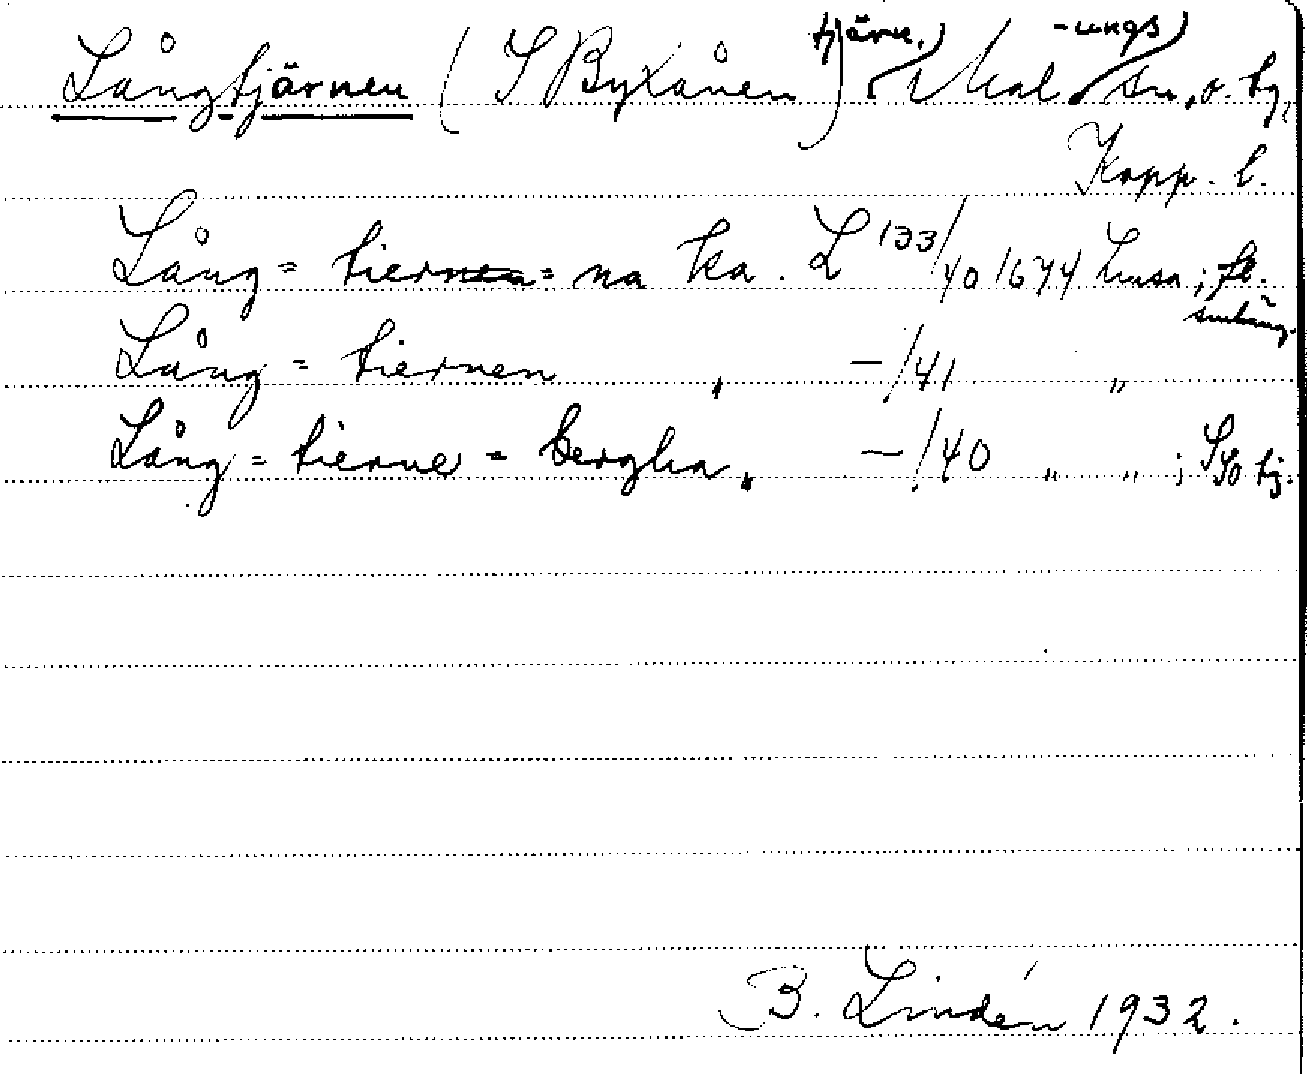 Långtjärnen (S Bylånen) tjärn, Mal -ungs sn. o. by,
Kopp. l.
Lång= tier= na ka. L 133/40 1674 Lmsa; fl.
småäng.
Lång= tiernen „ —/41 „
Lång= tierne= bergha „ —/40 „ „ ; S So tj.
B. Lindén 1932.